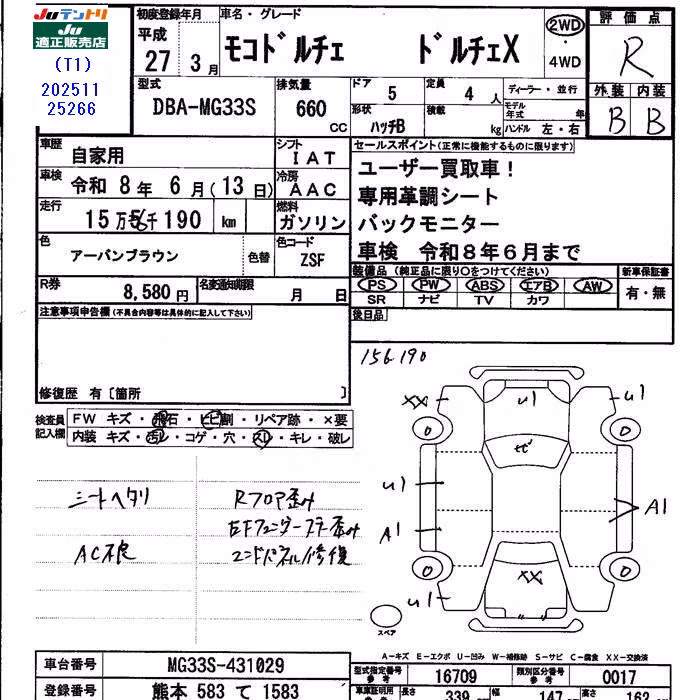 Juテントリ
Ju
適正販売店
(T1)
202511
25266
初度登録年月
平成
27 3月
車名・グレード
モコドルチェ ドルチェX
2WD
・
4WD
評価点
R
外装 内装
B B
型式
DBA-MG33S
排気量
660
CC
ドア
5
定員
4 人
形状
ハッチB
積載
kg
ディーラー・並行
モデル年式 年
ハンドル 左・右
車歴
自家用
シフト
IAT
車検
令和 8年 6月(13日)
冷房
AAC
走行
15万56千190 km
燃料
ガソリン
色
アーバンブラウン
色替
色コード
ZSF
R券
8,580円
名変通知期限
月 日
セールスポイント(正常に機能するものに限ります)
ユーザー買取車!
専用革調シート
バックモニター
車検 令和8年6月まで
装備品(純正品に限り○をつけてください)
新車保証書
PS PW ABS エアB AW
SR ナビ TV カワ
有・無
後日品
注意事項申告欄(不具合内容等は具体的に記入して下さい)
修復歴 有〔箇所 〕
検査員
記入欄
FW キズ・飛石・ヒビ割・リペア跡・×要
内装 キズ・汚レ・コゲ・穴・スレ・キレ・破レ
シートヘタリ
AC不良
Rフロア歪み
右Fフェンダーステー歪み
エンドパネル修復
156190
XX
U1
U1
ヒビ
U1
A1
A1
XX
U1
0
0
0
0
スペア
A-キズ E-エクボ U-凹み W-補修跡 S-サビ C-腐食 XX-交換済
車台番号
MG33S-431029
登録番号
熊本 583 て 1583
型式指定番号
参考
16709
類別区分番号
参考
0017
車庫証明用
参考
長さ
339
幅
147
高さ
162